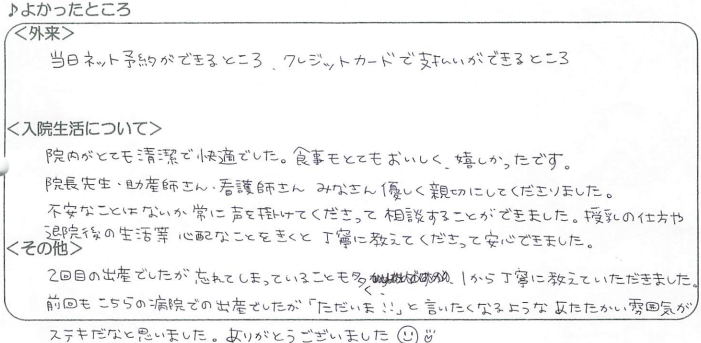 ♪よかったところ
＜外来＞
当日ネット予約ができるところ、クレジットカードで支払いができるところ
＜入院生活について＞
院内がとても清潔で快適でした。食事もとてもおいしく、嬉しかったです。
院長先生・助産師さん・看護師さん みなさん優しく親切にしてくださりました。
不安なことはないか常に声を掛けてくださって相談することができました。授乳の仕方や
退院後の生活等 心配なことをきくと 丁寧に教えてくださって安心できました。
＜その他＞
2回目の出産でしたが忘れてしまっていることも多く、1から丁寧に教えていただきました。
前回もこちらの病院での出産でしたが「ただいま!!」と言いたくなるようなあたたかい雰囲気が
ステキだなと思いました。ありがとうございました